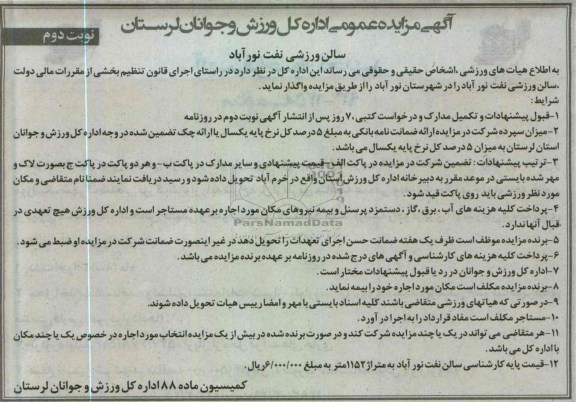 آگهی مزایده عمومی اداره کل ورزش و جوانان لرستان
نوبت دوم
سالن ورزشی نفت نورآباد
به اطلاع هیات های ورزشی ،اشخاص حقیقی و حقوقی می رساند این اداره کل در نظر دارد در راستای اجرای قانون تنظیم بخشی از مقررات مالی دولت
،سالن ورزشی نفت نور آباد را در شهرستان نور آباد را از طریق مزایده واگذار نماید.
شرایط:
۱-قبول پیشنهادات و تکمیل مدارک و درخواست کتبی ۷۰ روز پس از انتشار آگهی نوبت دوم در روزنامه
۲-میزان سپرده شرکت در مزایده ارائه ضمانت نامه بانکی به مبلغ ۵ درصد کل نرخ پایه یکسال یا ارائه چک تضمین شده در وجه اداره کل ورزش و جوانان
استان لرستان به میزان ۵ درصد کل نرخ پایه یکسال می باشد.
۳-ترتیب پیشنهادات : تضمین شرکت در مزایده در پاکت الف -قیمت پیشنهادی و سایر مدارک در پاکت ب- و هر دو پاکت در پاکت ج بصورت لاک و
مهر شده بایستی در موعد مقرر به دبیرخانه اداره کل ورزش استان واقع در خرم آباد تحویل داده شود و رسید دریافت نمایند ضمنا نام متقاضی و مکان
مورد نظر ورزشی باید روی پاکت قید شود.
۴-پرداخت کلیه هزینه های آب ، برق ،گاز ، دستمزد پرسنل و بیمه نیروهای مکان مورد اجاره بر عهده مستاجر است و اداره کل ورزش هیچ تعهدی در
قبال آنها ندارد.
ParsNamadData
۵-برنده مزایده موظف است ظرف یک هفته ضمانت حسن اجرای تعهدات را تحویل دهد در غیر اینصورت ضمانت شرکت در مزایده او ضبط می شود.
۶-پرداخت کلیه هزینه های کارشناسی و آگهی های درج شده در روزنامه بر عهده برنده مزایده می باشد.
۷-اداره کل ورزش و جوانان در رد یا قبول پیشنهادات مختار است.
۸-برنده مزایده مکلف است مکان مورد اجاره خود را بیمه نماید.
۹-در صورتی که هیاتهای ورزشی متقاضی باشند کلیه اسناد بایستی با مهر و امضار ییس هیات تحویل داده شوند.
۱۰-مستاجر مکلف است مفاد قرارداد را به اجرا در آورد.
۱۱-هر متقاضی می تواند در یک یا چند مزایده شرکت کند و در صورت برنده شده در بیش از یک مزایده انتخاب مورد اجاره در خصوص یک یا چند مکان
با اداره کل می باشد.
۱۲-قیمت پایه کارشناسی سالن نفت نور آباد به متراژ ۱۱۵۳متر به مبلغ ۶/۰۰۰/۰۰۰ریال.
کمیسیون ماده ۸۸ اداره کل ورزش و جوانان لرستان